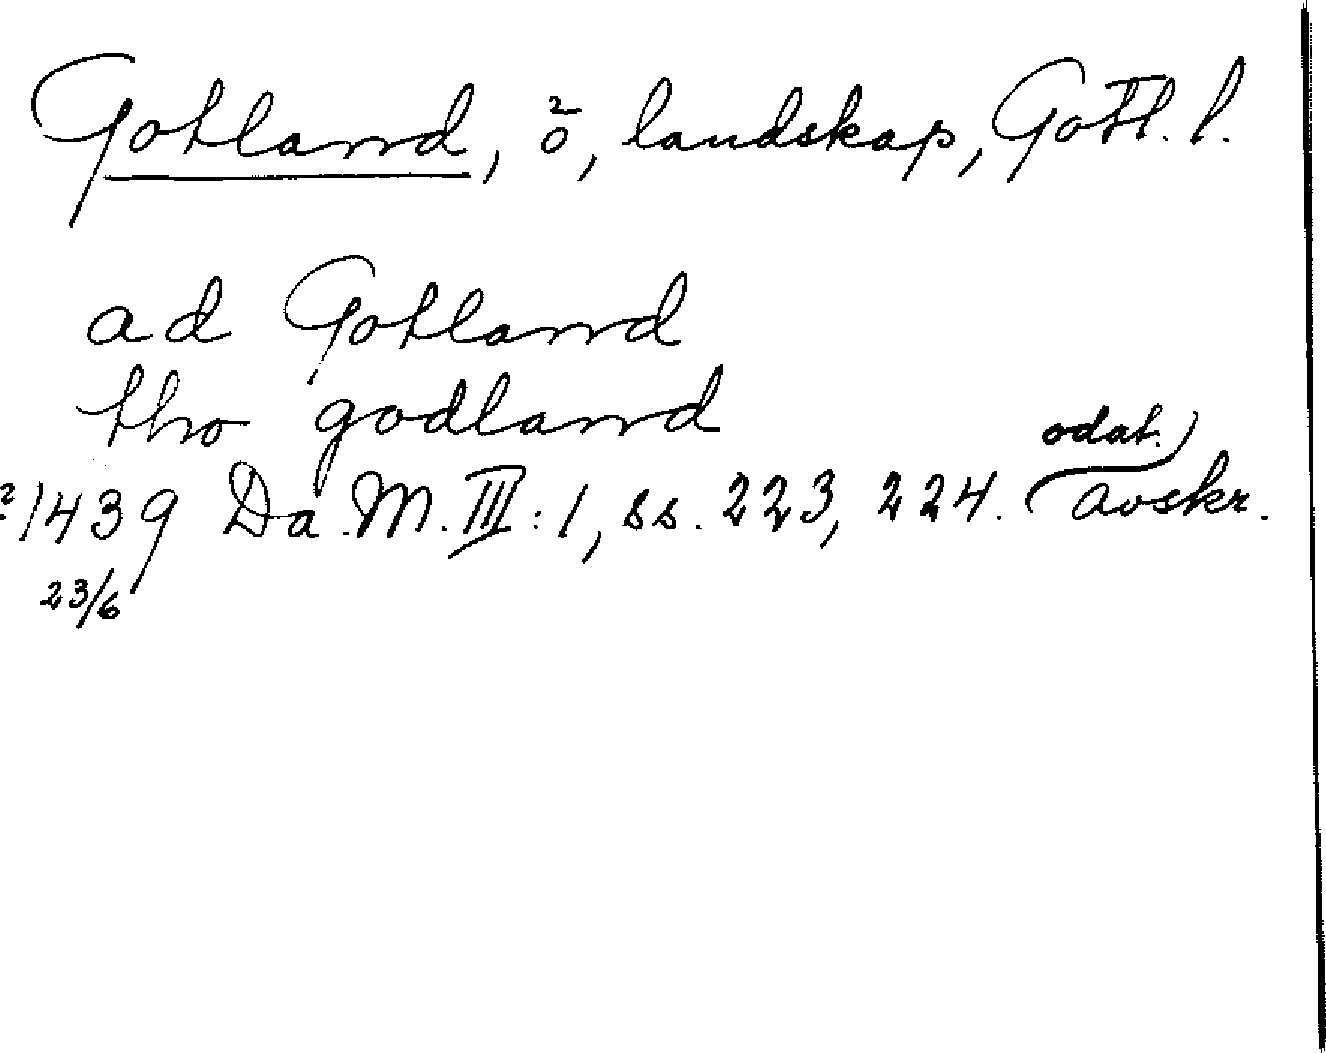 Gotland, ö, landskap, Gotl. l.
ad Gotland
tho godland
odat.
1439 Da. M. III: 1, ss. 223, 224. (avskr.
23/6